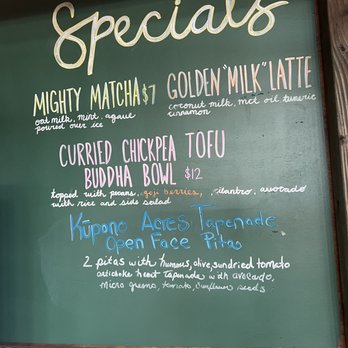 Specials
MIGHTY MATCHA $7
oat milk, mint, agave
poured over ice
GOLDEN "MILK" LATTE
coconut milk, mct oil, tumeric
cinnamon
CURRIED CHICKPEA TOFU
BUDDHA BOWL $12
topped with pecans, goji berries, cilantro, avocado
with rice and side salad
Kūpono Acres Tapenade
Open Face Pitas
2 pitas with hummus, olive, sundried tomato
artichoke heart Tapenade with avocado,
micro greens, tomato, sunflower seeds